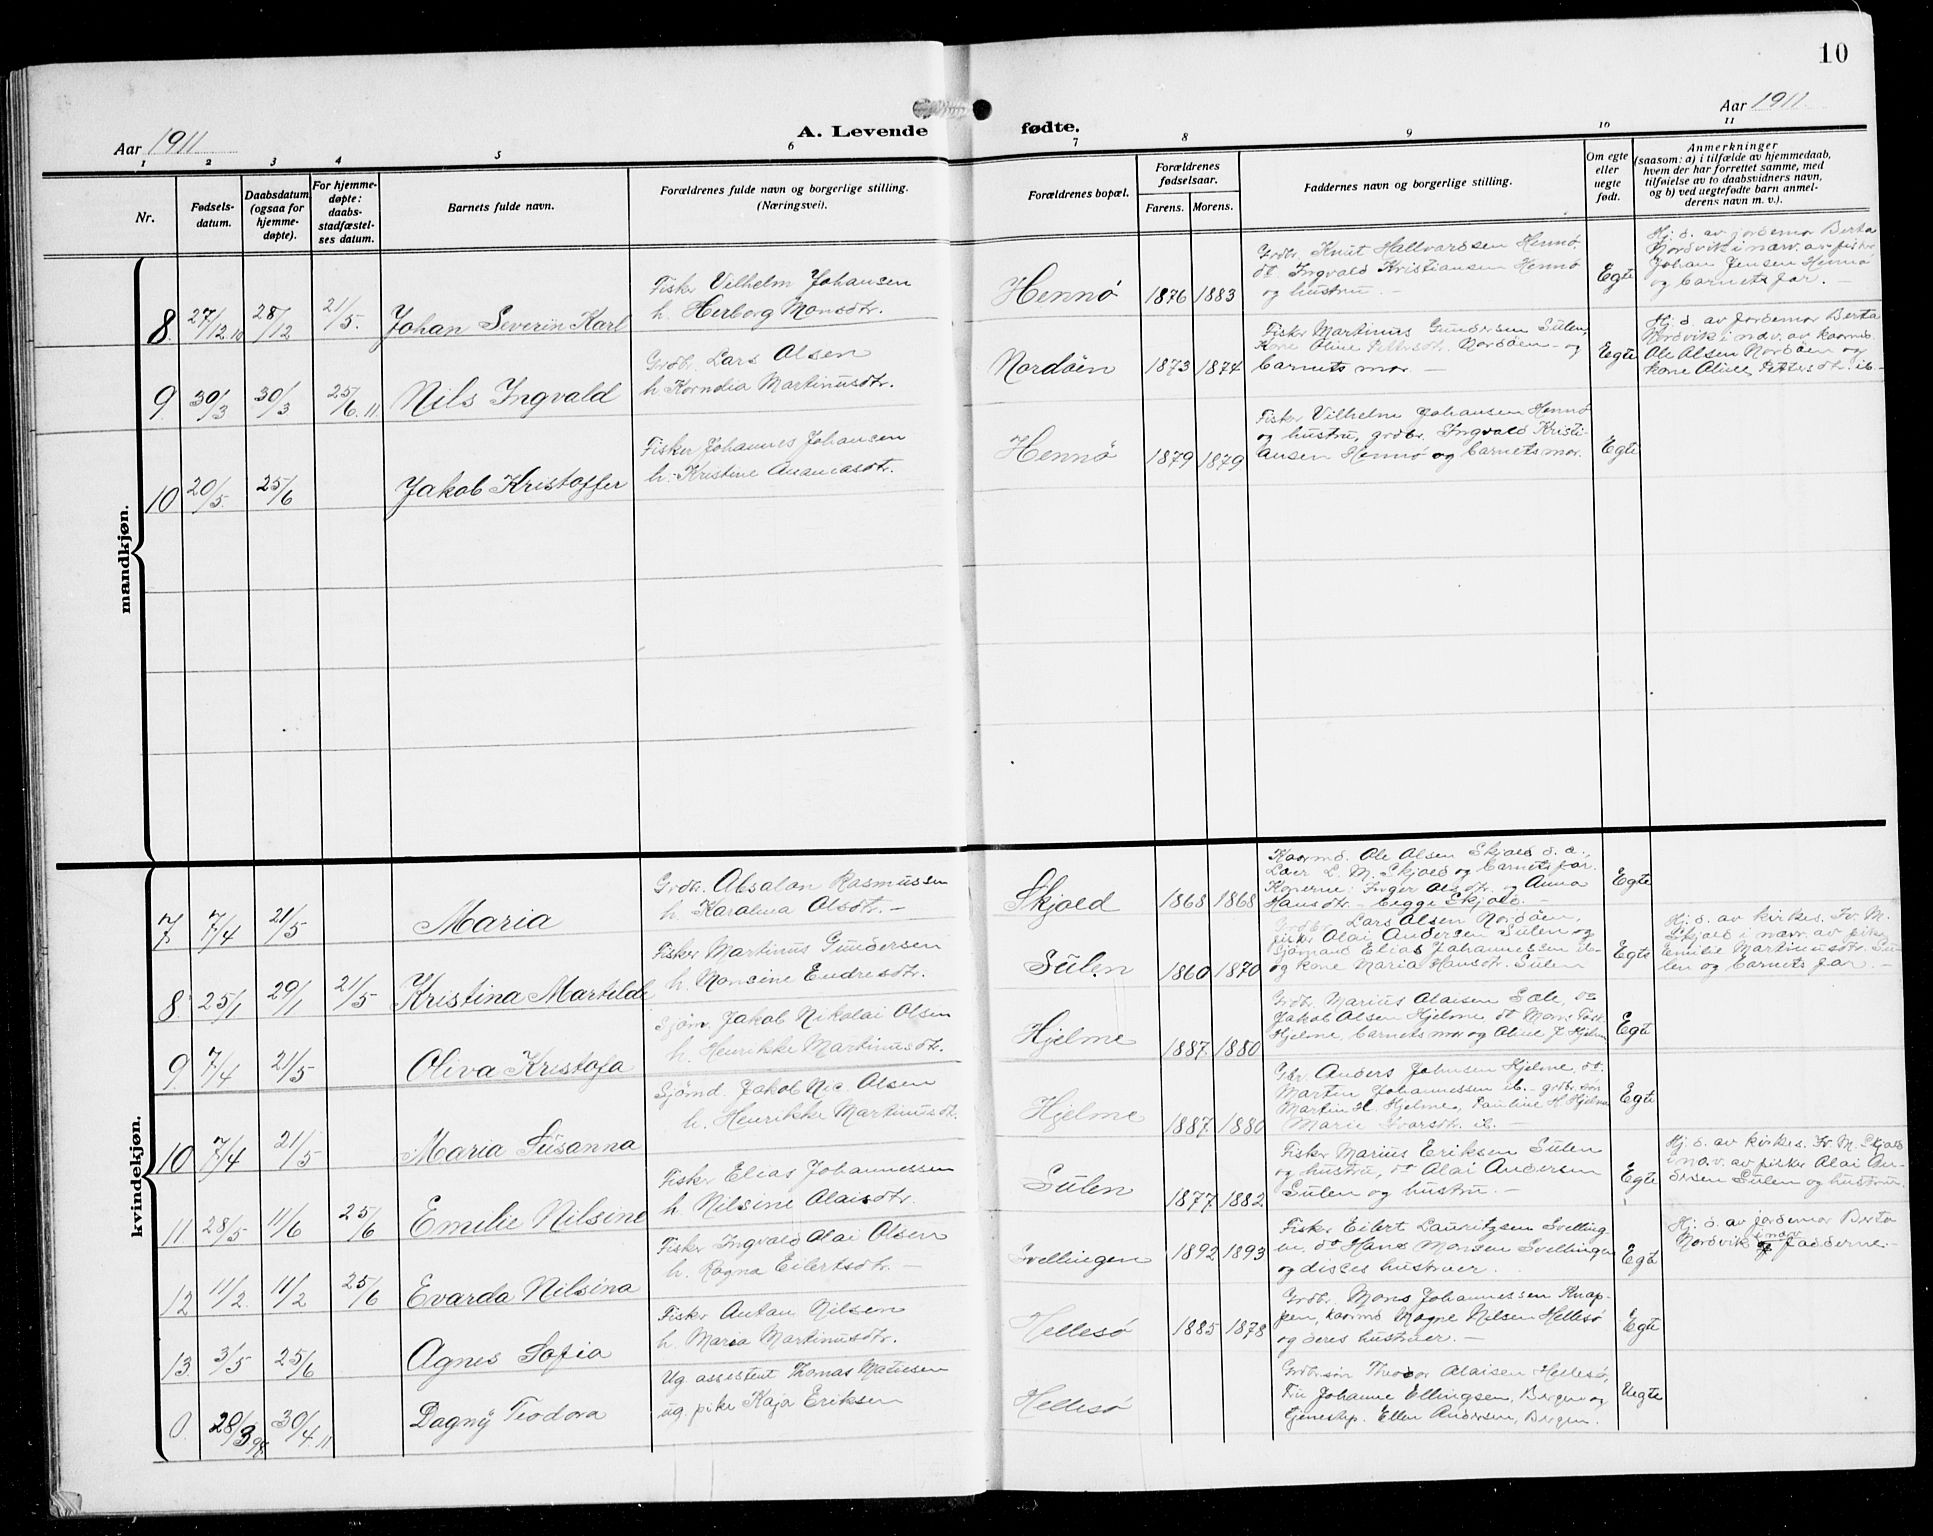 10
Aar 1911
A. Levende
fødte.
Aar 1911
1 2 3 4 5 6 7 8 9 10 11
Nr.
Fødsels-
datum.
Daabsdatum
(ogsaa for
hjemme-
døpte).
For hjemme-
døpte:
daabs-
stadfæstel-
ses datum.
Barnets fulde navn.
Forældrenes fulde navn og borgerlige stilling.
(Næringsvei).
Forældrenes bopæl.
Forældrenes
fødselsaar.
Farens. Morens.
Faddernes navn og borgerlige stilling.
Om egte
eller
uegte
født.
Anmerkninger
(saasom: a) i tilfælde av hjemmedaab,
hvem der har forrettet samme, med
tilføielse av to daabsvidners navn,
og b) ved uegtefødte barn anmel-
derens navn m. v.).
mandkjøn.
8. 27/12 10 28/12 21/5. Johan Severin Karl
Fisker Vilhelm Johansen
h. Herborg Monsdtr.
Hennö 1876 1883
Grdbr. Knut Hallvardsen Hennö
do Ingvald Kristiansen Hennö
og hustru. —
Egte
Hj. d. av jordemor Berta
Nordvik i nærv. av fisker
Johan Jensen Hennö
og barnets far. —
9. 30/3 30/3 25/6. 11. Nils Ingvald
Grdbr. Lars Olsen
h. Korndia Martinusdtr.
Nordöen 1873 1874
Fisker Martinus Gundersen Sulen,
Kone Oline Pettersdt. Nordöen – og
barnets mor. —
Egte
Hj. d. av Jordemor Berta
Nordvik i nærv. av kaarmd.
Ole Olsen Nordöen og
kone Oline Pettersdtr. ib. –
10 20/5. 25/6 Jakob Kristoffer
Fisker Johannes Johansen
h. Kristine Ananiasdtr.
Hennö 1879 1879
Fisker Vilhelm Johansen Hennö
og hustru, grdbr. Ingvald Kristi-
ansen Hennö og barnets mor.
Egte
kvindekjøn.
7. 7/4 21/5 Maria
Grdbr. Absalon Rasmussen
h. Karolina Olsdtr. –
Skjold 1868 1868
Kaarmd. Ole Olsen Skjold d. æ.,
Lærer L. M. Skjold og barnets far.
Konerne: Inger Olsdtr. og Anna
Hansdtr. – begge Skjold. –
Egte
8 25/1 29/1 21/5 Kristina Martilde
Fisker Martinus Gundersen
h. Monsine Endresdtr.
Sulen 1860 1870
Grdbr. Lars Olsen Nordöen,
fisker Olai Andersen Sulen og
Sjömand Elias Johannessen ib–
og kone Maria Hansdtr. Sulen
Egte
Hj. d. av kirkes. Fr. M.
Skjold i nærv. av pike
Emilie Martinusdtr. Su-
len og barnets far. –
9 7/4 21/5 Oliva Kristofa
Sjöm. Jakob Nikolai Olsen
h. Henrikke Martinusdtr.
Hjelme 1887 1880
Grdbr. Marius Olaisen Sæle, do
Jakob Olsen Hjelme do Mons
Hjelme, barnets mor og Oline J. Hjelme
Egte
10 7/4 21/5 Maria Susanna
Sjömd. Jakob Nic. Olsen
h. Henrikke Martinusdt.
Hjelme 1887 1880
Gbr. Anders Johnsen Hjelme, do.
Martin Johannessen ib. – grdbr. sön
Martin H. Hjelme, Pauline H. Hjelme
Marie Ivarsdt. ib. —
Egte
11 28/5 11/6 25/6 Emilie Nilsine
Fisker Elias Johannessen
h. Nilsine Olaisdtr.
Sulen 1877 1882
Fisker Marius Eriksen Sulen
og hustru, do Olai Andersen
Sulen og hustru. –
Egte
Hj. d. av kirkes. Fr. M. Skjold
i nærv. av fisker Olai An-
dersen Sulen og hustru.
12 11/2. 11/2 25/6 Evarda Nilsina
Fisker Ingvald Olai Olsen
h. Ragna Eilertsdtr. —
Svellingen 1892 1893
Fisker Eilert Lauritzsen Svelling-
en, do Hans Monsen Svellingen
og disses hustruer.
Egte
Hj. d. av jordemor Berta
Nordvik i nærv. fadderne. –
13. 3/5 25/6 Agnes Sofia
Fisker Antan Nilsen
h. Maria Martinusdtr.
Hellesö 1885 1878
Grdbr. Mons Johannessen Knap-
pen, kaarmd. Mogne Nilsen Hellesö
og deres hustruer. –
Egte
0. 28/3 98. 30/4. 11 Dagny Teodora
Ug. assistent Thomas Matiesen
ug. pike Kaja Eriksen
Hellesö
Grdbr.sön Theodor Olaisen Hellesö,
Fru Johanne Ellingsen, Bergen og
tjenestep. Ellen Andersen, Bergen.
Uegte